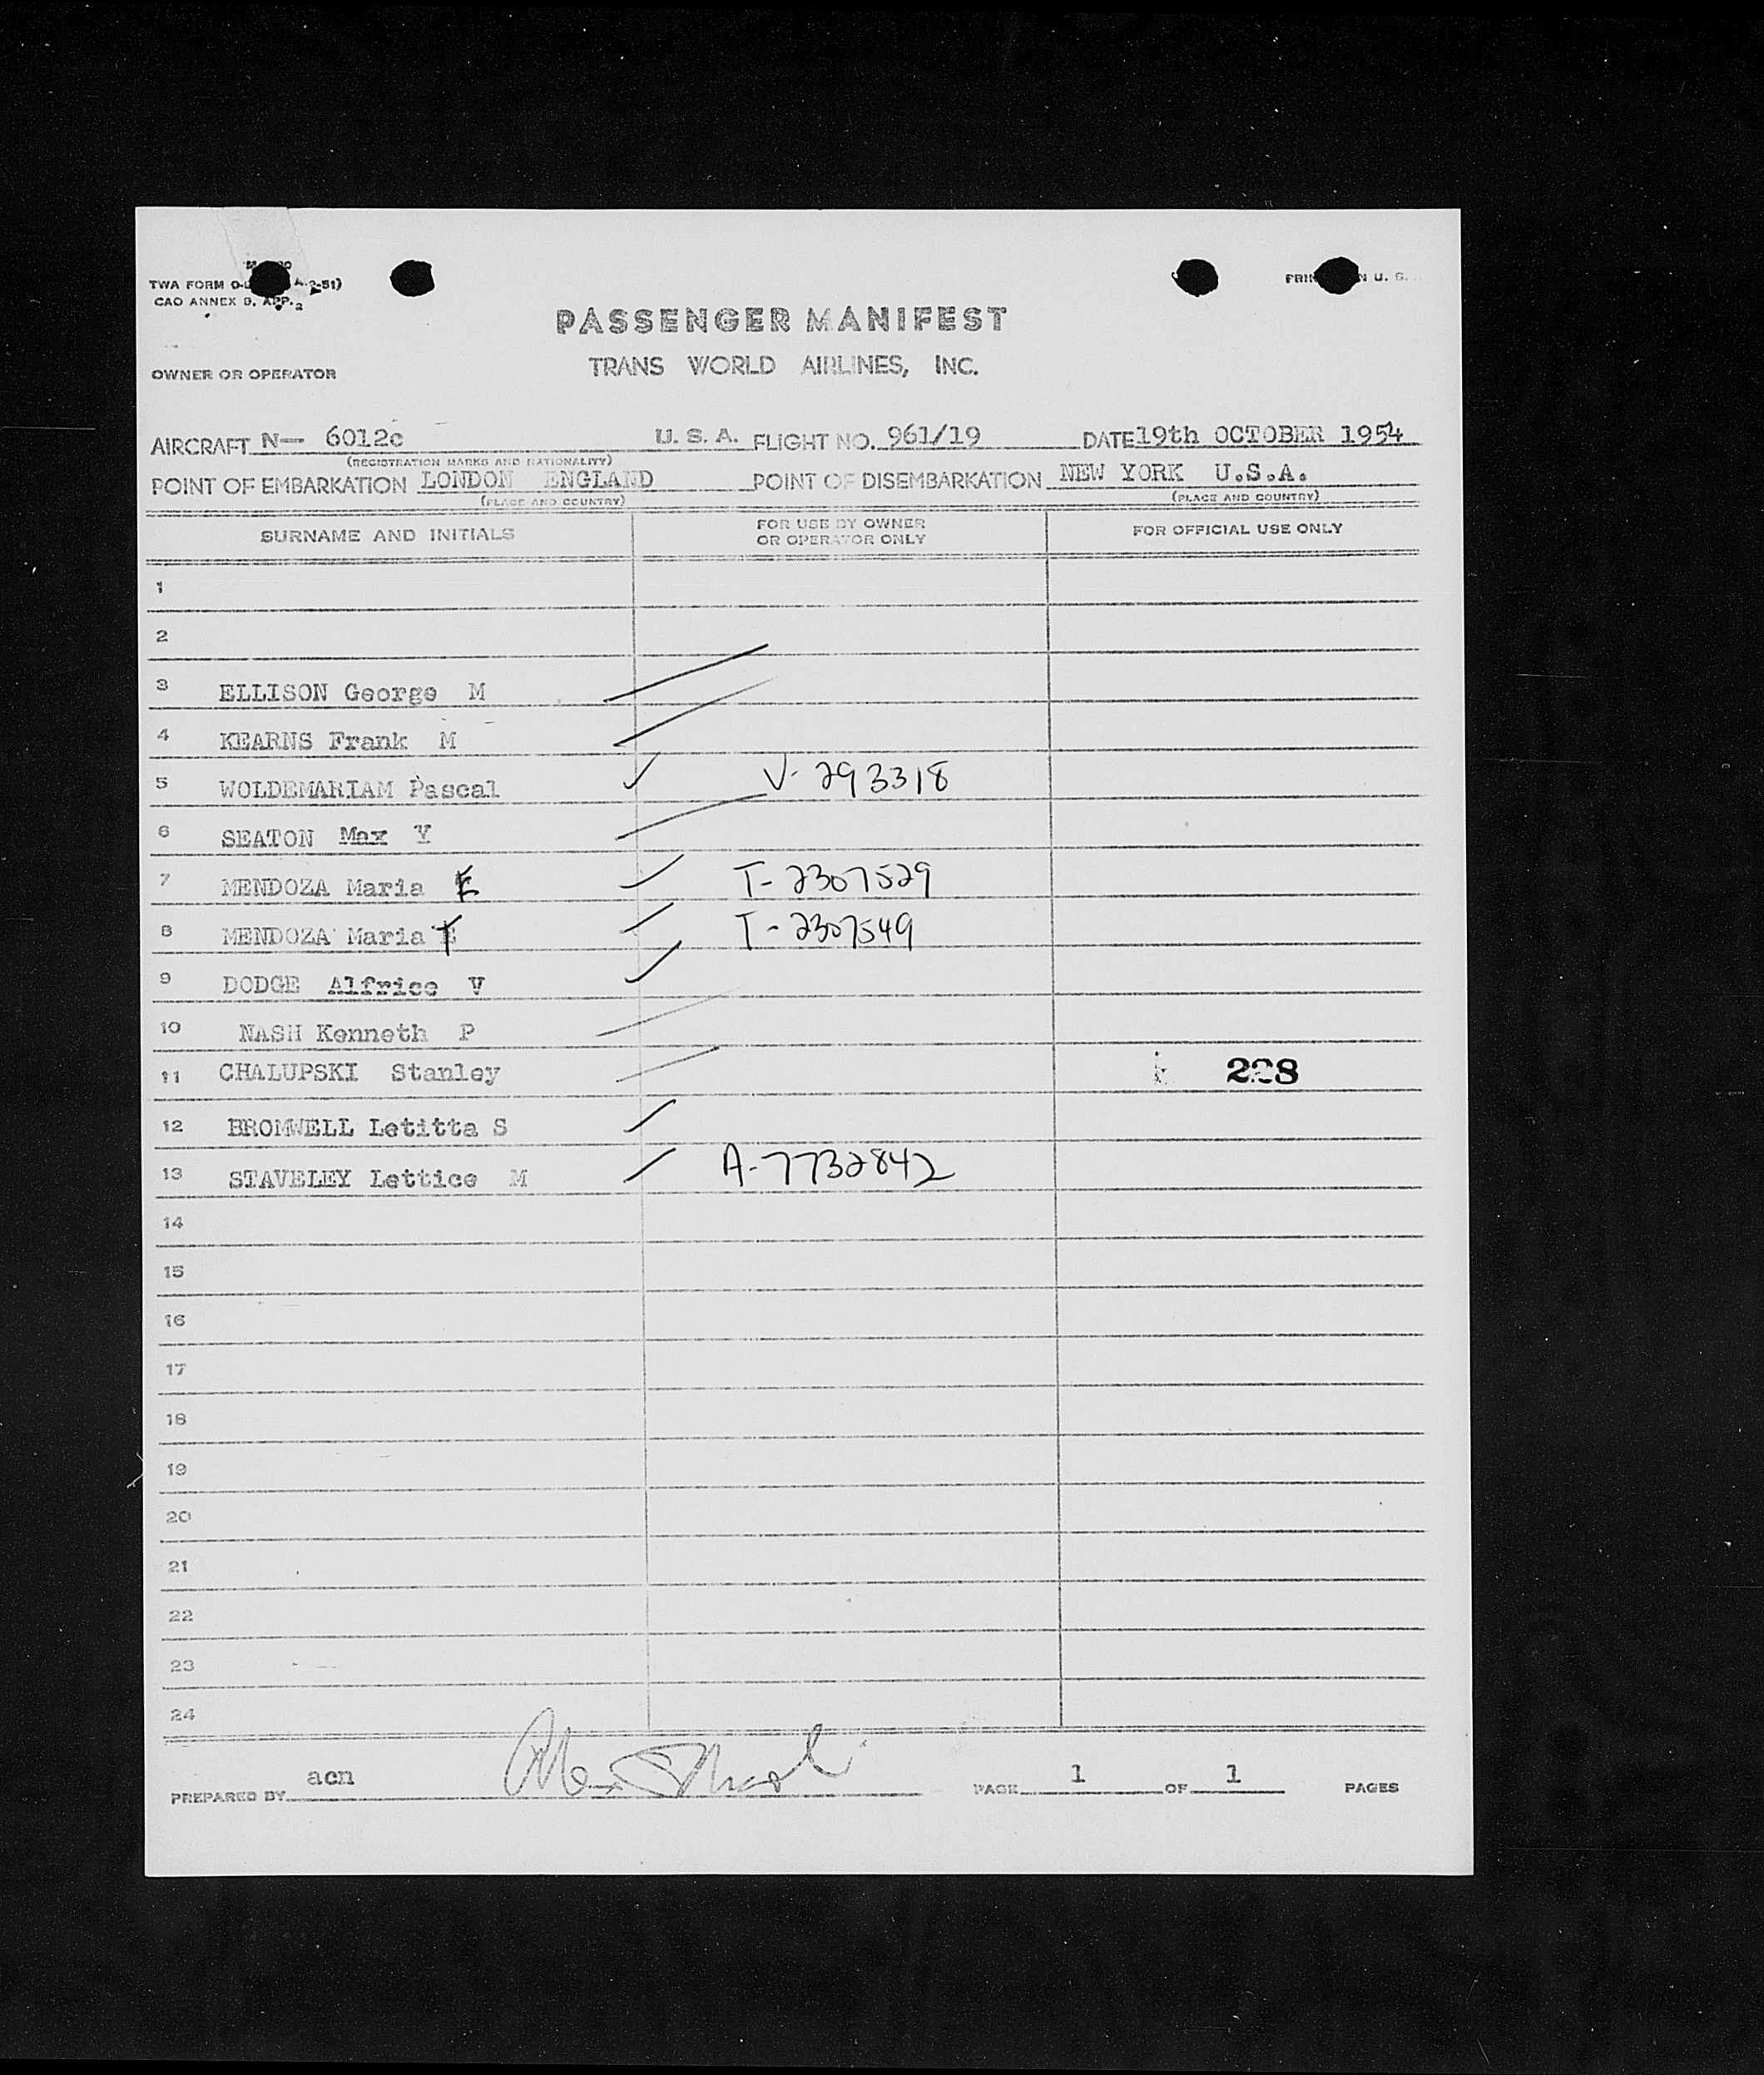 TWA FORM 0- A-2-51)
CAO ANNEX 9, APP. 2
U. S.
PASSENGER MANIFEST
TRANS WORLD AIRLINES, INC.
OWNER OR OPERATOR
AIRCRAFT N- 6012c U. S. A. FLIGHT NO. 961/19 DATE 19th OCTOBER 1954
(REGISTRATION MARKS AND NATIONALITY)
POINT OF EMBARKATION LONDON ENGLAND POINT OF DISEMBARKATION NEW YORK U.S.A.
(PLACE AND COUNTRY) (PLACE AND COUNTRY)
SURNAME AND INITIALS FOR USE BY OWNER OR OPERATOR ONLY FOR OFFICIAL USE ONLY
1
2
3 ELLISON George M
4 KEARNS Frank M
5 WOLDEMARIAM Pascal V- 293318
6 SEATON Max V
7 MENDOZA Maria E T- 2307529
8 MENDOZA Maria T T- 2307549
9 DODGE Alfrice V
10 NASH Kenneth P
11 CHALUPSKI Stanley 228
12 BROMWELL Letitta S
13 STAVELEY Lettice M A-7732842
14
15
16
17
18
19
20
21
22
23
24
PREPARED BY acn PAGE 1 OF 1 PAGES